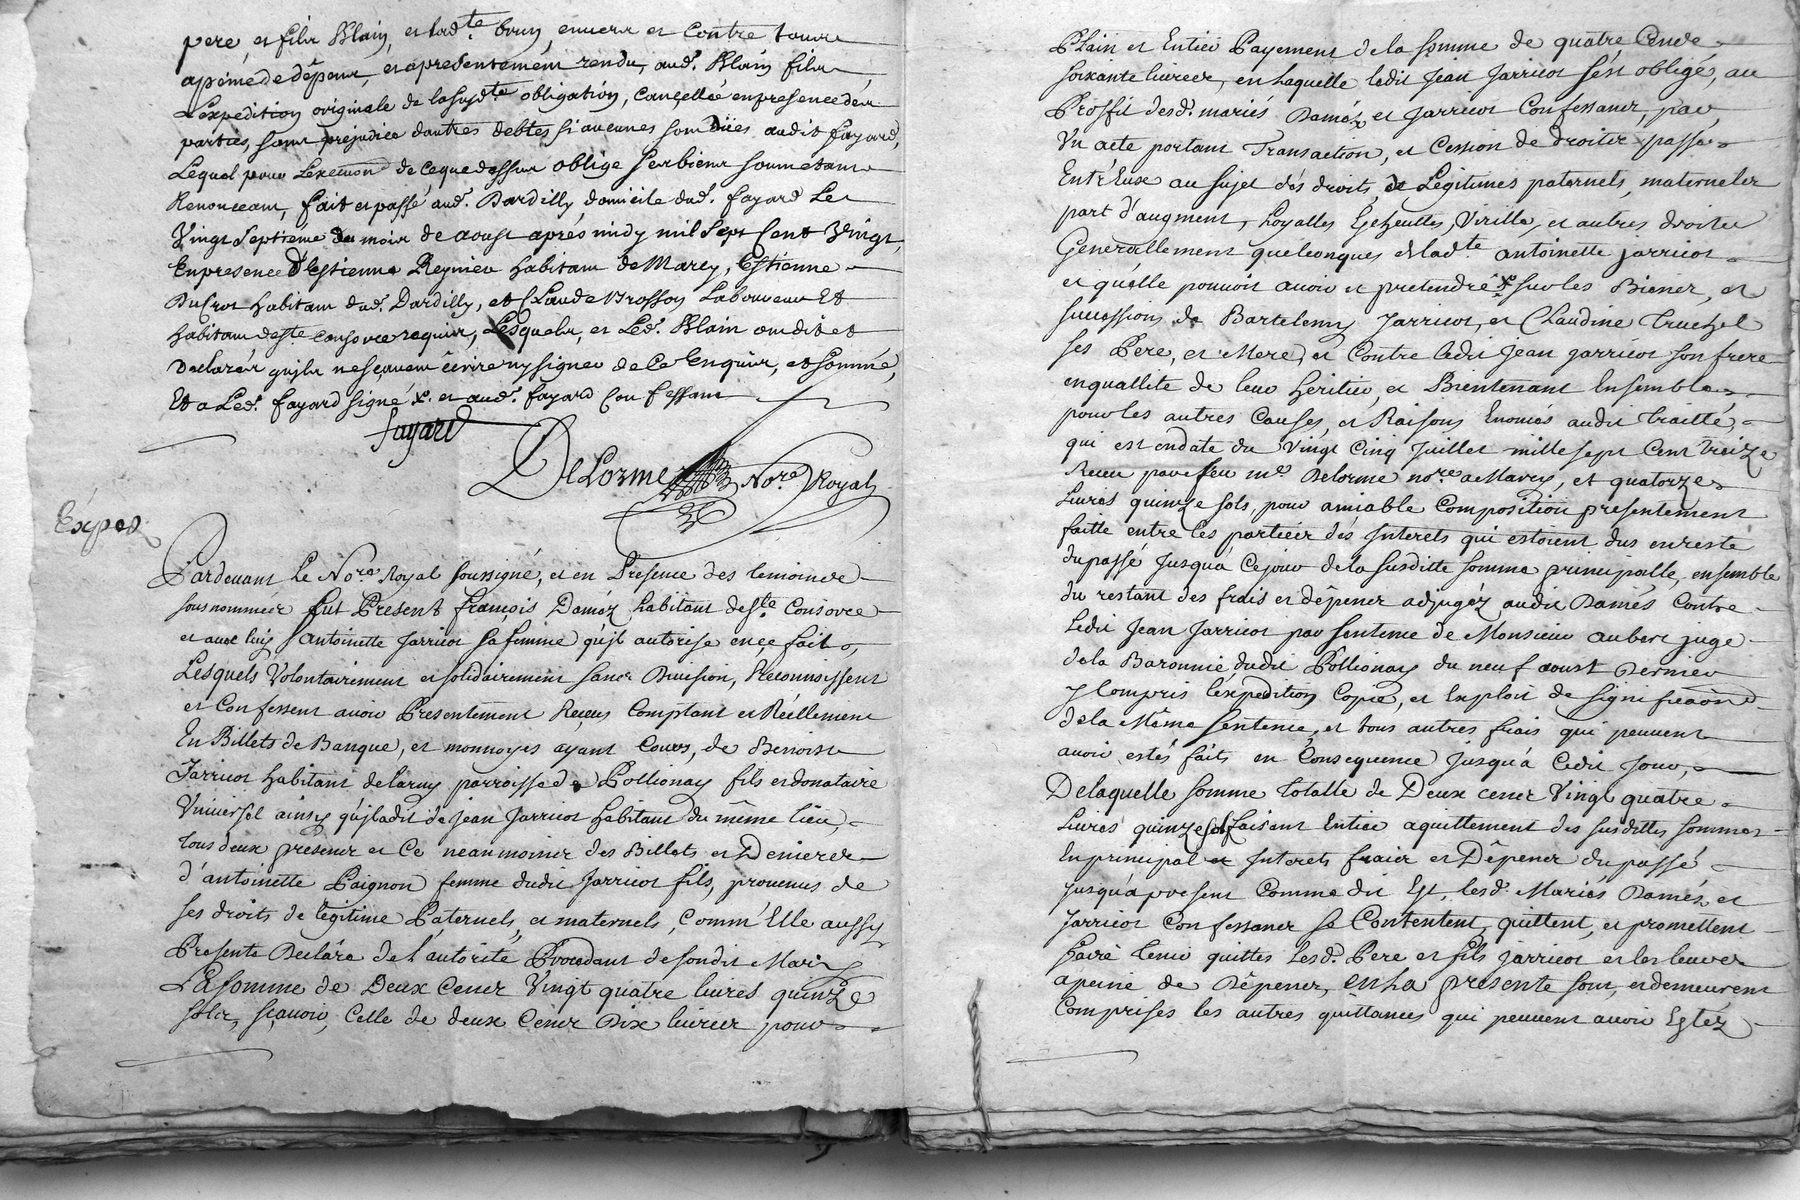 pere, et fils Blain, et lad.te brun, envers et Contre tous
apeine de dêpens, et apresentement rendu, aud. Blain fils
L'expedition originale de la susd.te obligation, Cancellée en presence des
parties, sans prejudice d'autres debtes si aucunes sont Dües audit fayard,
Lequel pour L'execution de ce que dessus oblige ses biens soumetant
Renonceant, fait et passé aud. Dardilly domicile dud. fayard Le
Vingt Septieme du mois de aoust aprés midy mil Sept Cent Vingt,
En presence D'Estienne Reynier habitant de Marcy, Estienne
DuCrot habitant dud. Dardilly, et Claude Brossy Laboureur Et
habitant de S.te Consorce requis, Lesquels, et Led. Blain ont dit et
Declaré, qu'ils ne sçavent êcrire ny signer de Ce Enquis, et sommé,
Et a Led. fayard signé x. et aud. fayard Confessant
fayard
DeLorme No.re Royal
Expéd.
Pardevant Le No.re Royal soussigné, et en Presence des temoins
sous nommés fut Present françois Daméz habitant de S.te Consorce
et avec luy Antoinette Jarricot sa femme qu'il autorise en ce fait,
Lesquels Volontairement et solidairement sans Division, Reconnoissent
et Confessent avoir Presentement Reçus Comptant et Réellement
En Billets de Banque, et monnoyes ayant Cours, de Benoist
Jarricot habitant de Larny parroisse de Pollionay fils et donataire
Universél ainsy qu'il a dit de Jean Jarricot habitant du même lieu,
tous deux présens et Ce neanmoins des Billets et Deniers
d'antoinette Paignon femme dudit Jarricot fils, provenus de
ses droits de légitime Paternels, et maternels, Comm'Elle aussy
Presente Declâre de l'autorité Procedant de sondit Mary
La somme de Deux Cens Vingt quatre livres quinze
sols, sçavoir, Celle de deux Cens Dix livres pour
Plain et Entier Payement de la somme de quatre Cens
soixante livres, en Laquelle ledit Jean Jarricot s'est obligé, au
Proffit desd. mariés Daméz et Jarricot Confessans, par,
Un acte portant Transaction, et Cession de droits passé
Entr'Eux au sujet des droits de Légitimes paternels, maternels
part d'augment, Loyalles Echeuttes, Virille, et autres droits
Generallement quelconques et lad.te antoinette jarricot
et qu'elle pouvoit avoir et pretendre x sur les Biens, et
successions de Bartelemy Jarricot, et Claudine Truchet
ses Pere, et Mere, et Contre ledit Jean jarricot son frere
en quallité de leur héritier, et Bientenant Ensemble
pour les autres Causes, et Raisons Enoncés audit traitté,
qui est en date du Vingt Cinq Juillet mille sept Cent treize
Receu par feu m.e Delorme no.re a Marcy, et quatorze
Livres quinze sols, pour amiable Composition presentement
faitte entre les parties des Interets qui estoient dus en reste
du passé Jusqu'a Ce jour de la susditte somme principalle, ensemble
du restant des frais et dêpens adjugéz audit Damés Contre
Ledit Jean Jarricot par sentence de Monsieur aubert juge
de la Baronnie dudit Pollionay du neuf aoust Dernier
y Compris l'expedition Copie, et Exploit de signification
de la Même sentence, et tous autres frais qui peuvent
avoir estés faits en Consequence Jusqu'a Cedit Jour,
De laquelle somme totalle de Deux cens Vingt quatre
Livres quinze sols faisant Entier aquittement des susdittes sommes
En principal et Interets frais et Dêpens du passé
jusqu'a present Comme dit Est, lesd. Mariés Daméz, et
Jarricot Confessans se Contentent, quittent, et promettent
faire tenir quittes Lesd. Pere et fils jarricot et les leurs
a peine de Dêpens, en La presente sont, et demeurent
Comprises les autres quittances qui peuvent avoir Estéz